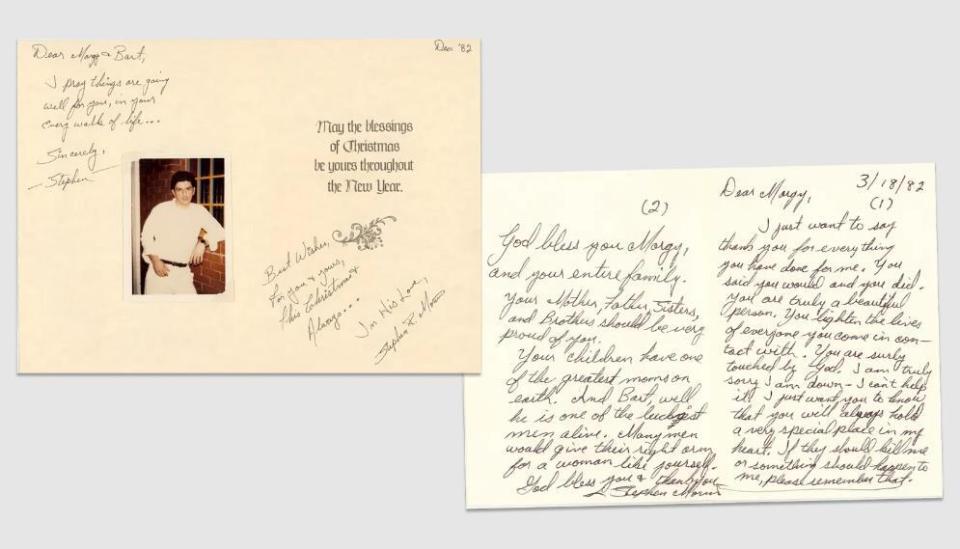 Dec '82
Dear Margy & Bart,
I pray things are going
well for you, in your
every walk of life...
Sincerely,
Stephen
May the blessings
of Christmas
be yours throughout
the New Year.
Best Wishes,
For you & yours,
This Christmas &
Always...
In His Love,
Stephen R.
3/18/82
Dear Morgy,
(1)
I just want to say
thank you for everything
you have done for me. You
said you would and you did.
You are truly a beautiful
person. You lighten the lives
of everyone you come in con-
tact with. You are surly
touched by God. I am truly
sorry I am down - I can't help
it. I just want you to know
that you will always hold
a very special place in my
heart. If they should kill me
or something should happen to
me, please remember that.
(2)
God bless you Morgy,
and your entire family.
Your Mother, Father, Sisters,
and Brothers should be very
proud of you.
Your children have one
of the greatest moms on
earth. And Bart, well
he is one of the luckgist
men alive. Many men
would give their right arm
for a woman like yourself.
God bless you & thank you
Stephen Morin